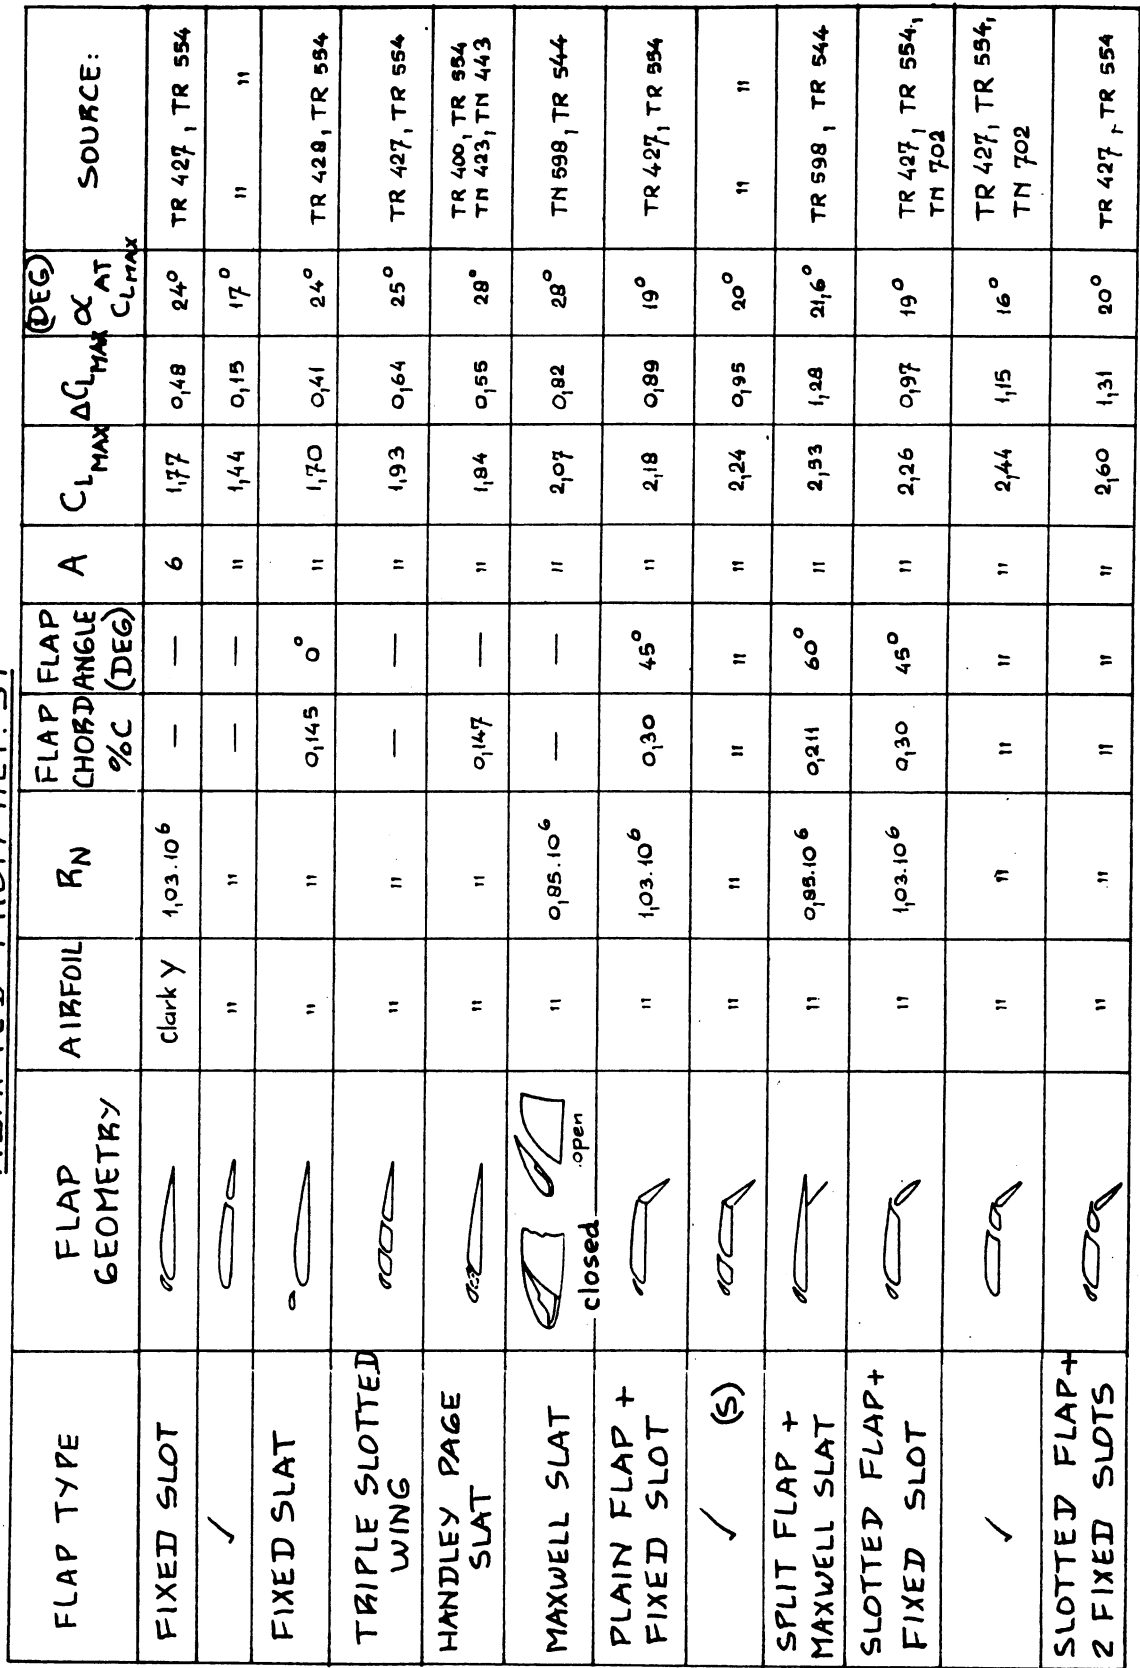 FLAP TYPE | FLAP GEOMETRY | AIRFOIL | RN | FLAP CHORD %C | FLAP ANGLE (DEG) | A | CLMAX | ΔCLMAX | (DEG) α AT CLMAX | SOURCE:
FIXED SLOT | | Clark Y | 1,03.10⁶ | — | — | 6 | 1,77 | 0,48 | 24° | TR 427, TR 554
✓ | | " | " | — | — | " | 1,44 | 0,15 | 17° | " "
FIXED SLAT | | " | " | 0,145 | 0° | " | 1,70 | 0,41 | 24° | TR 428, TR 554
TRIPLE SLOTTED WING | | " | " | — | — | " | 1,93 | 0,64 | 25° | TR 427, TR 554
HANDLEY PAGE SLAT | | " | " | 0,147 | — | " | 1,84 | 0,55 | 28° | TR 400, TR 554 TN 423, TN 443
MAXWELL SLAT | closed open | " | 0,85.10⁶ | — | — | " | 2,07 | 0,82 | 28° | TN 598, TR 544
PLAIN FLAP + FIXED SLOT | | " | 1,03.10⁶ | 0,30 | 45° | " | 2,18 | 0,89 | 19° | TR 427, TR 554
✓ (S) | | " | " | " | " | " | 2,24 | 0,95 | 20° | " "
SPLIT FLAP + MAXWELL SLAT | | " | 0,85.10⁶ | 0,211 | 60° | " | 2,53 | 1,28 | 21,6° | TR 598, TR 544
SLOTTED FLAP + FIXED SLOT | | " | 1,03.10⁶ | 0,30 | 45° | " | 2,26 | 0,97 | 19° | TR 427, TR 554, TN 702
✓ | | " | " | " | " | " | 2,44 | 1,15 | 16° | TR 427, TR 554, TN 702
SLOTTED FLAP + 2 FIXED SLOTS | | " | " | " | " | " | 2,60 | 1,31 | 20° | TR 427, TR 554